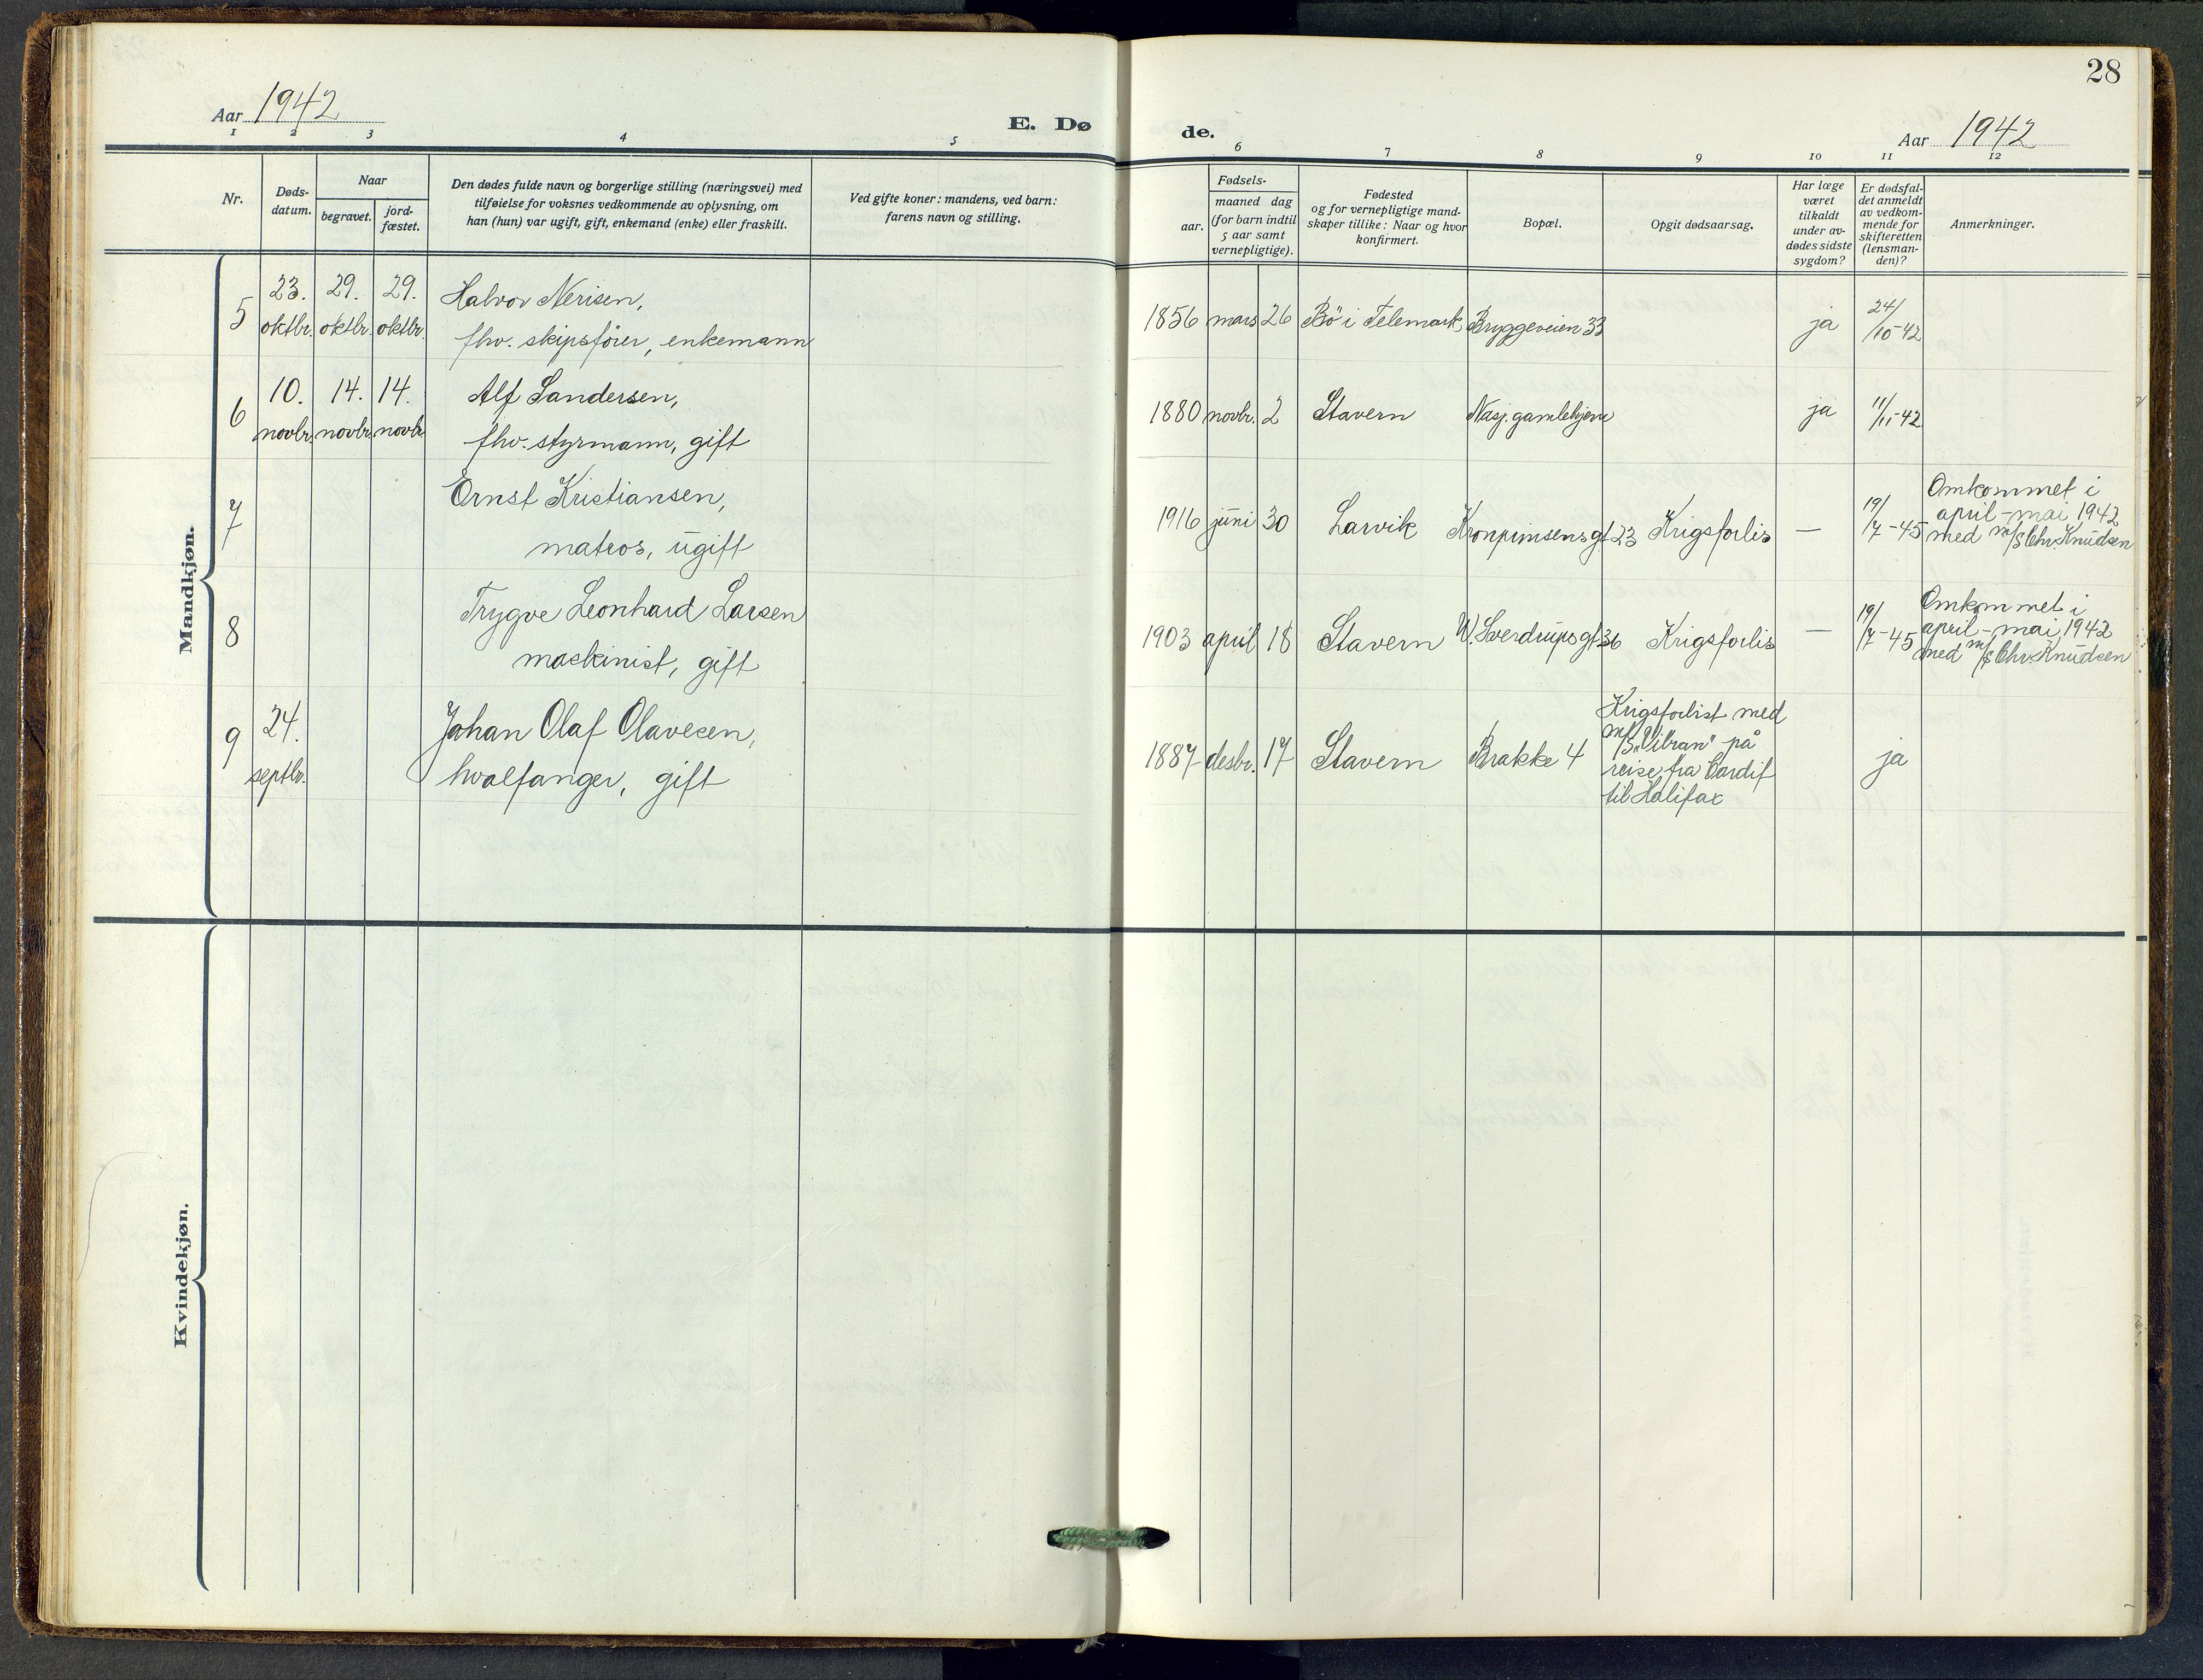 28
Aar 1942
E. Dø
de.
Aar 1942
1 2 3 4 5 6 7 8 9 10 11 12
Nr.
Døds-
datum.
Naar
begravet.
jord-
fæstet.
Den dødes fulde navn og borgerlige stilling (næringsvei) med
tilføielse for voksnes vedkommende av oplysning, om
han (hun) var ugift, gift, enkemand (enke) eller fraskilt.
Ved gifte koner: mandens, ved barn:
farens navn og stilling.
Fødsels-
aar.
maaned dag
(for barn indtil
5 aar samt
vernepligtige).
Fødested
og for vernepligtige mand-
skaper tillike: Naar og hvor
konfirmert.
Bopæl.
Opgit dødsaarsag.
Har læge
været
tilkaldt
under av-
dødes sidste
sygdom?
Er dødsfal-
det anmeldt
av vedkom-
mende for
skifteretten
(lensman-
den)?
Anmerkninger.
Mandkjøn.
5
23.
oktbr.
29.
oktbr.
29.
oktbr.
Halvor Nerisen,
fhv. skipsfører, enkemann
1856 mars 26 Bö i Telemark Bryggeveien 33
ja
24/
/10-42
6
10.
novbr.
14.
novbr.
14.
novbr.
Alf Sandersen,
fhv. styrmann, gift
1880 novbr. 2 Stavern Nasj. gamlehjem
ja
11/
/11-42
7
Ernst Kristiansen,
matros, ugift
1916 juni 30 Larvik Kronprinsensgt. 23 Krigsforlis
—
19/
/7-45
Omkommet i
april-mai 1942
med m/s Chr. Knudsen
8
Trygve Leonhard Larsen
maskinist, gift
1903 april 18 Stavern W. Sverdrupsgt 36 Krigsforlis
—
19/
/7-45
Omkommet i
april-mai, 1942
med m/s Chr. Knudsen
9
24.
septbr.
Johan Olaf Olavesen,
hvalfanger, gift
1887 desbr. 17 Stavern Brakke 4
Krigsforlist med
m/s „Vibran" på
reise fra Cardif
til Halifax
ja
Kvindekjøn.